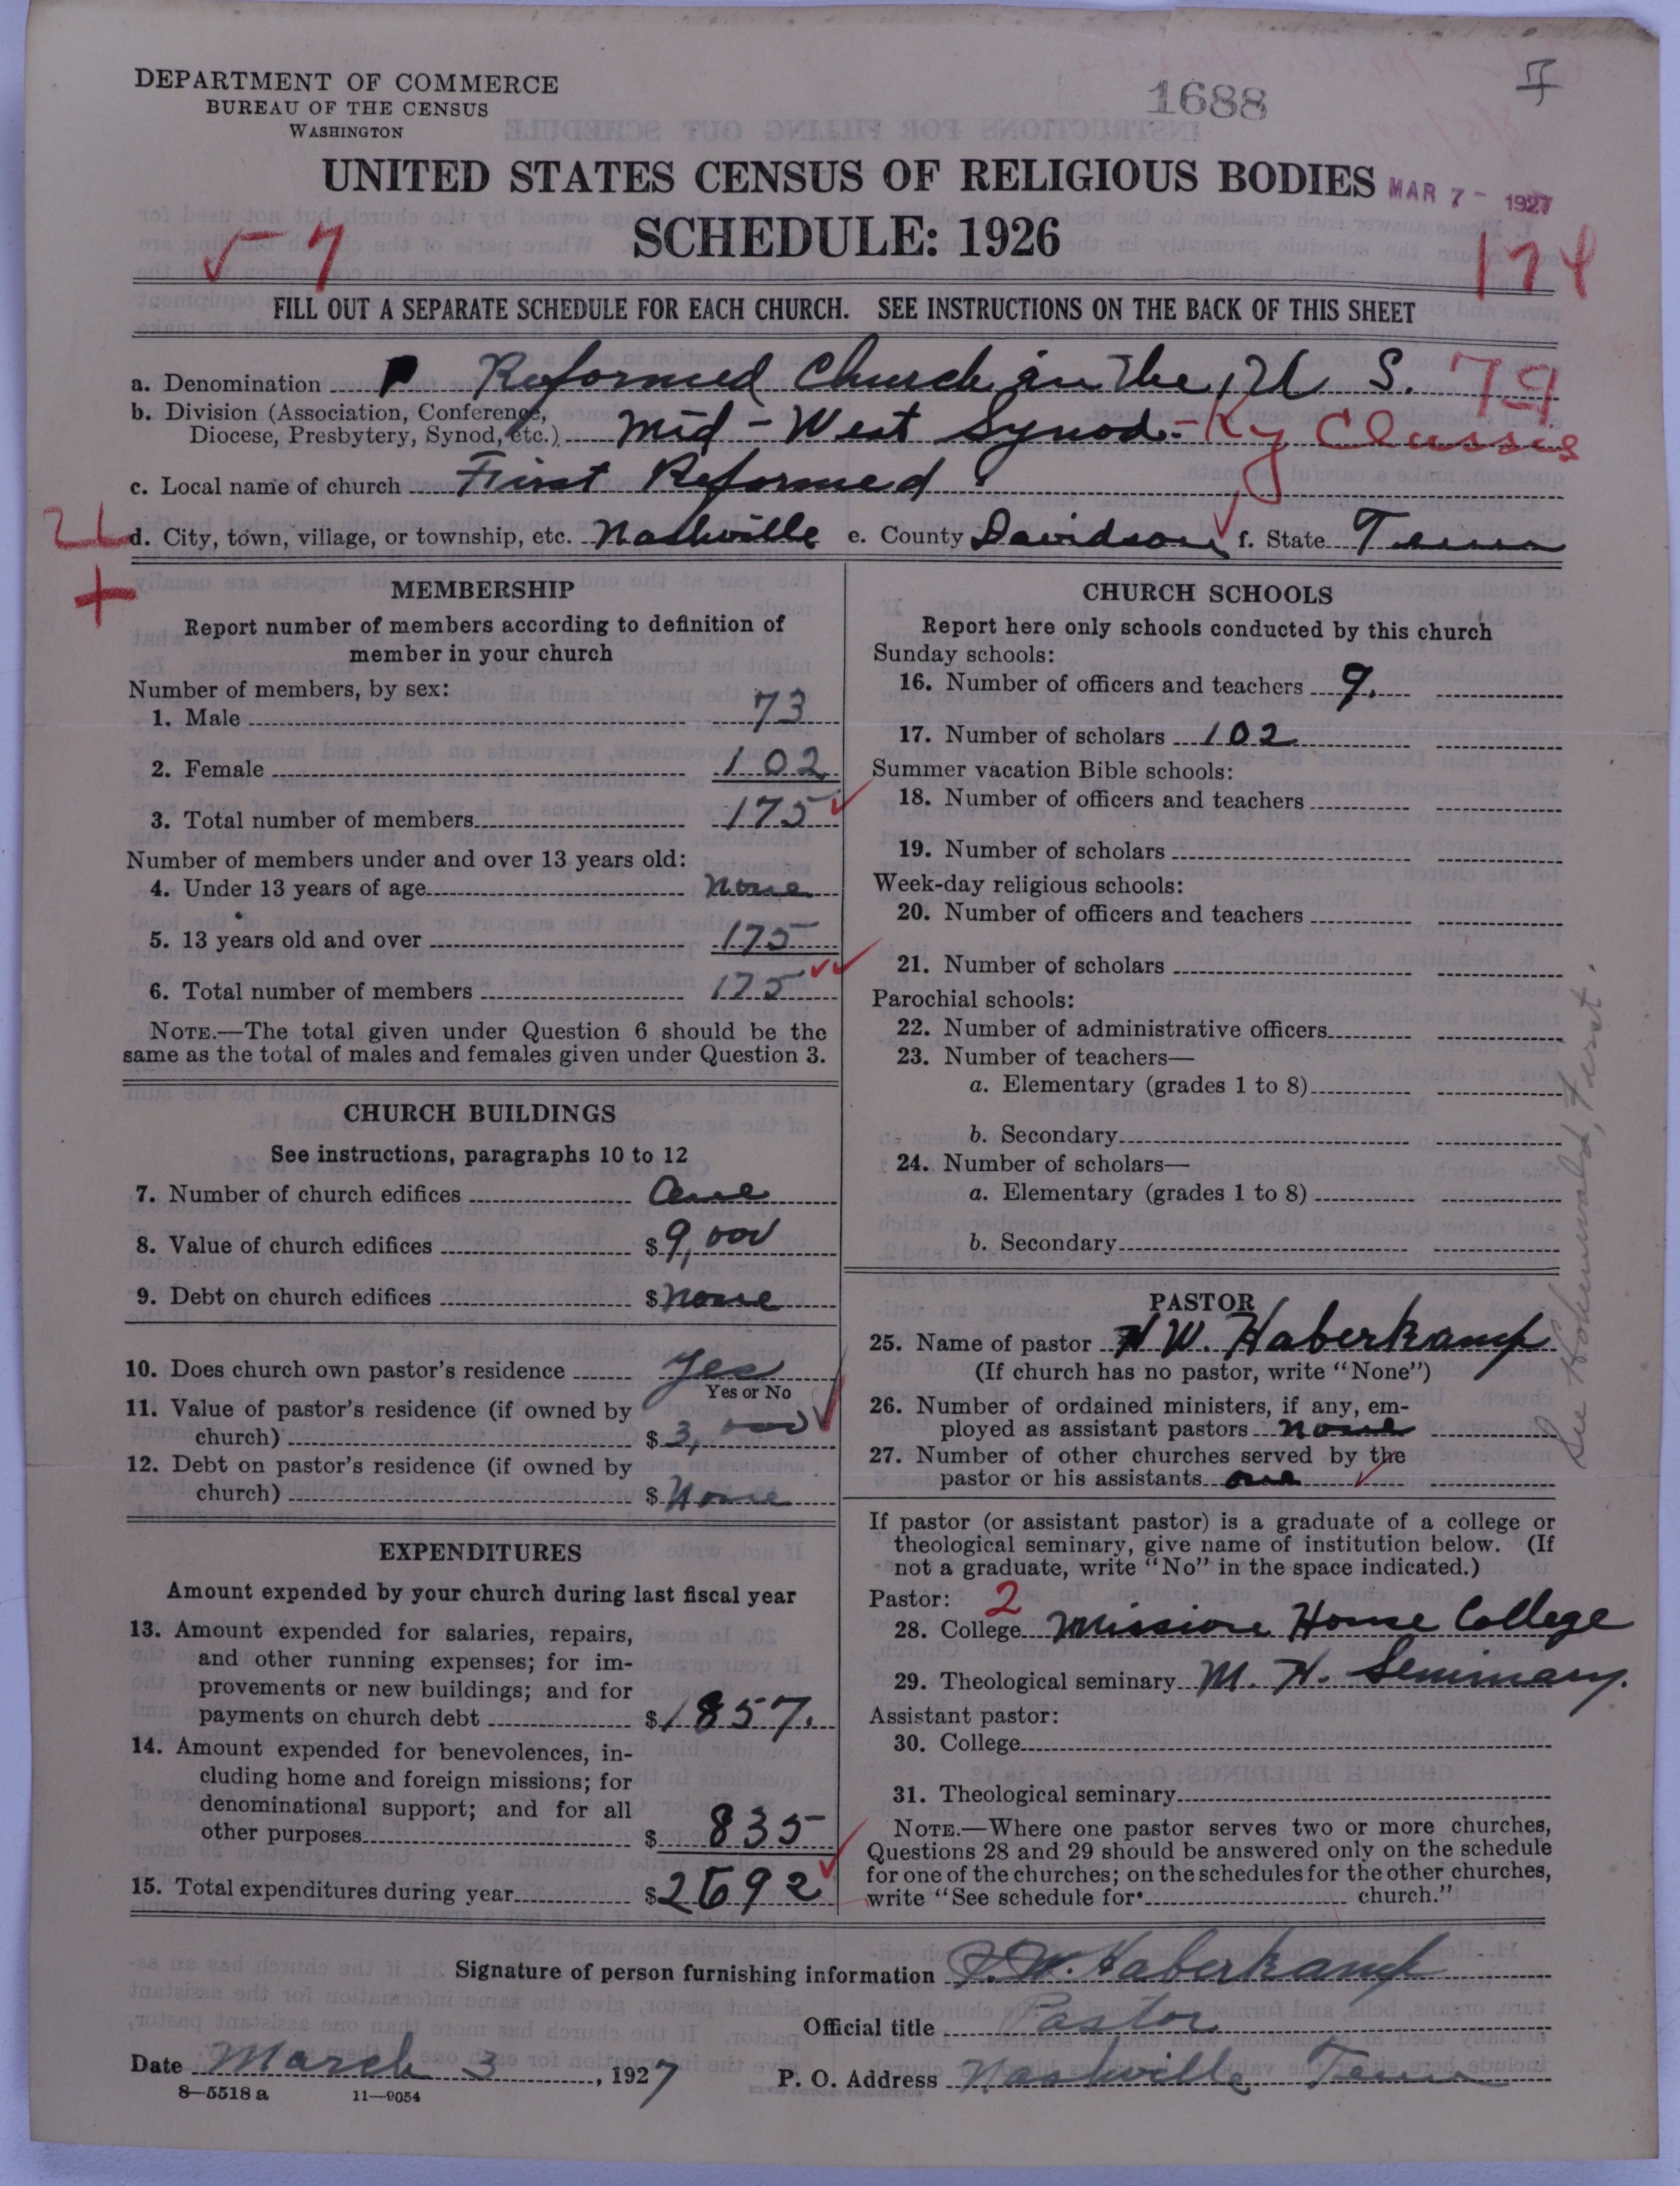 DEPARTMENT OF COMMERCE
BUREAU OF THE CENSUS
WASHINGTON
1688
UNITED STATES CENSUS OF RELIGIOUS BODIES
MAR 7 - 1927
SCHEDULE: 1926
7
174
FILL OUT A SEPARATE SCHEDULE FOR EACH CHURCH. SEE INSTRUCTIONS ON THE BACK OF THIS SHEET
a. Denomination Reformed Church in the U S. 79
b. Division (Association, Conference, Diocese, Presbytery, Synod, etc.) Mid-West Synod - Ky Classis
c. Local name of church First Reformed
d. City, town, village, or township, etc. Nashville e. County Davidson f. State Tenn
MEMBERSHIP
Report number of members according to definition of
member in your church
Number of members, by sex:
1. Male 73
2. Female 102
3. Total number of members 175
Number of members under and over 13 years old:
4. Under 13 years of age None
5. 13 years old and over 175
6. Total number of members 175
NOTE.—The total given under Question 6 should be the
same as the total of males and females given under Question 3.
CHURCH BUILDINGS
See instructions, paragraphs 10 to 12
7. Number of church edifices One
8. Value of church edifices $9,000
9. Debt on church edifices $None
10. Does church own pastor's residence Yes
Yes or No
11. Value of pastor's residence (if owned by
church) $3,000
12. Debt on pastor's residence (if owned by
church) $None
EXPENDITURES
Amount expended by your church during last fiscal year
13. Amount expended for salaries, repairs,
and other running expenses; for im-
provements or new buildings; and for
payments on church debt $1857.
14. Amount expended for benevolences, in-
cluding home and foreign missions; for
denominational support; and for all
other purposes $835
15. Total expenditures during year $2692
CHURCH SCHOOLS
Report here only schools conducted by this church
Sunday schools:
16. Number of officers and teachers 9.
17. Number of scholars 102
Summer vacation Bible schools:
18. Number of officers and teachers
19. Number of scholars
Week-day religious schools:
20. Number of officers and teachers
21. Number of scholars
Parochial schools:
22. Number of administrative officers
23. Number of teachers—
a. Elementary (grades 1 to 8)
b. Secondary
24. Number of scholars—
a. Elementary (grades 1 to 8)
b. Secondary
See Hohenwald, First.
PASTOR
25. Name of pastor H W. Haberkamp
(If church has no pastor, write "None")
26. Number of ordained ministers, if any, em-
ployed as assistant pastors None
27. Number of other churches served by the
pastor or his assistants one
If pastor (or assistant pastor) is a graduate of a college or
theological seminary, give name of institution below. (If
not a graduate, write "No" in the space indicated.)
Pastor: 2
28. College Mission House College
29. Theological seminary M. H. Seminary.
Assistant pastor:
30. College
31. Theological seminary
NOTE.—Where one pastor serves two or more churches,
Questions 28 and 29 should be answered only on the schedule
for one of the churches; on the schedules for the other churches,
write "See schedule for church."
Signature of person furnishing information F. W. Haberkamp
Official title Pastor
Date March 3, 1927 P. O. Address Nashville Tenn
8—5518 a 11—9054